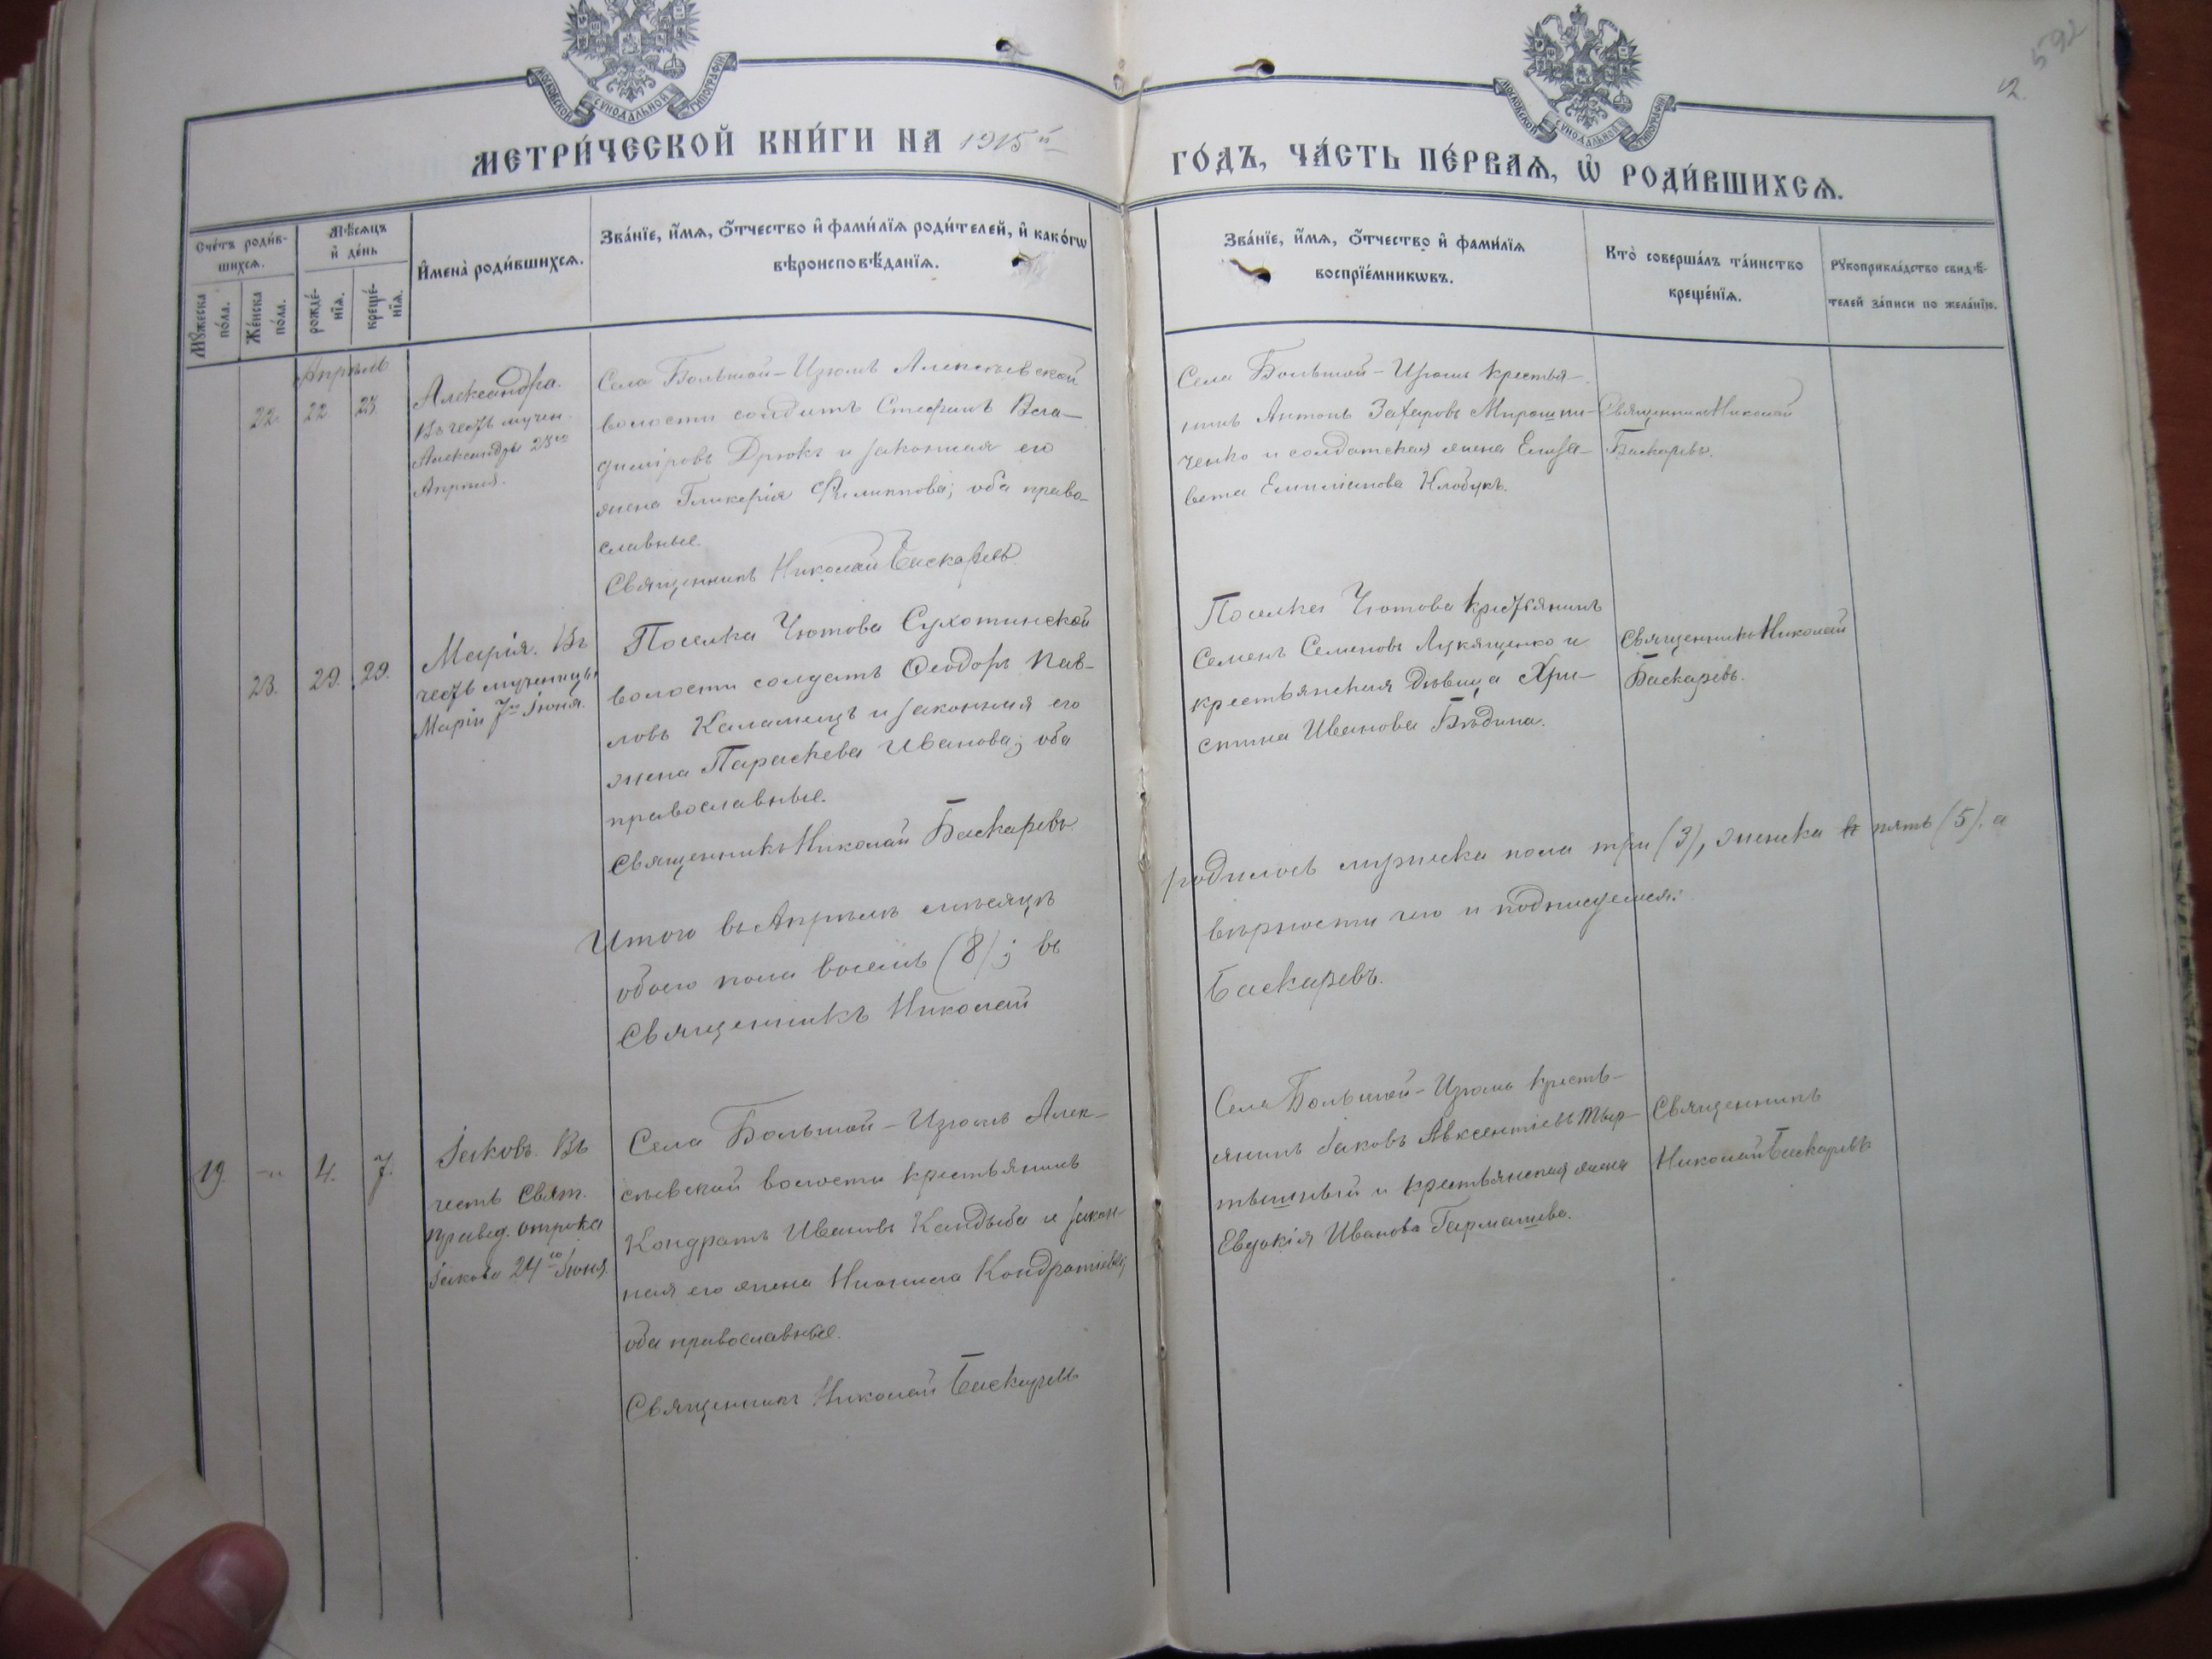 592
МОСКОВСКОЙ СУНОДАЛЬНОЙ ТИПОГРАФІИ
МОСКОВСКОЙ СУНОДАЛЬНОЙ ТИПОГРАФІИ
МЕТРИ́ЧЕСКОЙ КНИ́ГИ НА 1915й
ГО́ДЪ, ЧА́СТЬ ПЕ́РВАѦ, Ѡ҆ РОДИ́ВШИХСѦ.
Сче́тъ роди́в-
шихсѧ.
Мꙋ́жеска по́ла.
Же́нска по́ла.
Мѣ́сѧцъ
и҆ де́нь
рожде́-
нїѧ.
креще́-
нїѧ.
И҆мена̀ роди́вшихсѧ.
Зва́нїе, и҆́мѧ, ѻ҆́тчество и҆ фами́лїѧ роди́телей, и҆ како́гѡ
вѣроисповѣ́данїѧ.
Зва́нїе, и҆́мѧ, ѻ҆́тчество и҆ фами́лїѧ
воспрїе́мникѡвъ.
Кто̀ соверша́лъ та́инство
креще́нїѧ.
Рꙋкоприкла́дство свидѣ́-
телей за́писи по жела́нїю.
Апрѣль
22. 22 23.
Александра.
Въ честь мучен.
Александры 23го
Апрѣля.
Села Большой-Изюмъ Алексѣевской
волости солдатъ Стефанъ Вла-
димiровъ Дрюкъ и законная его
жена Гликерія Филиппова; оба право-
славные.
Священникъ Николай Баскаревъ
Села Большой-Изюмъ крестья-
нинъ Антонъ Захаровъ Мирошни-
ченко и солдатская жена Елиза-
вета Емиліанова Клобукъ.
Священникъ Николай
Баскаревъ.
23. 29. 29.
Марія. Въ
честь мученицы
Маріи 7го Іюня.
Поселка Чютова Сухотинской
волости солдатъ Ѳеодоръ Пав-
ловъ Каламецъ и законная его
жена Параскева Иванова; оба
православные.
Священникъ Николай Баскаревъ
Поселка Чютова крестьянинъ
Семенъ Семеновъ Лукященко и
крестьянская дѣвица Хри-
стина Иванова Бѣдина.
Священникъ Николай
Баскаревъ.
Итого въ Апрѣлѣ мѣсяцѣ
родилось мужеска пола три (3), женска пять (5), а
обоего пола восемь (8); въ
вѣрности чего и подписуемся:
Священникъ Николай
Баскаревъ.
19. 4. 7.
Іаковъ. Въ
честь Свят.
правед. отрока
Іакова 24го Іюня.
Села Большой-Изюмъ Алек-
сѣевской волости крестьянинъ
Кондратъ Ивановъ Кандыба и закон-
ная его жена Неонила Кондратіева;
оба православные.
Священникъ Николай Баскаревъ
Села Большой-Изюмъ кресть-
янинъ Іаковъ Авксентіевъ Тыр-
тышный и крестьянская жена
Евдокія Иванова Гармашева.
Священникъ
Николай Баскаревъ